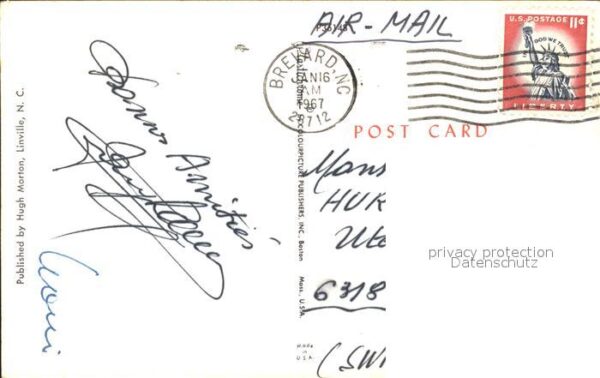 AIR-MAIL
U.S. POSTAGE 11¢
IN GOD WE TRUST
LIBERTY
BREVARD, NC
JAN 16
AM
1967
28712
POST CARD
Amitiés
Published by Hugh Morton, Linville, N. C.
COLOURPICTURE PUBLISHERS, INC., Boston
Mass., U.S.A.
MADE IN
U.S.A.
Mons
HUR
6318
(SW
privacy protection
Datenschutz